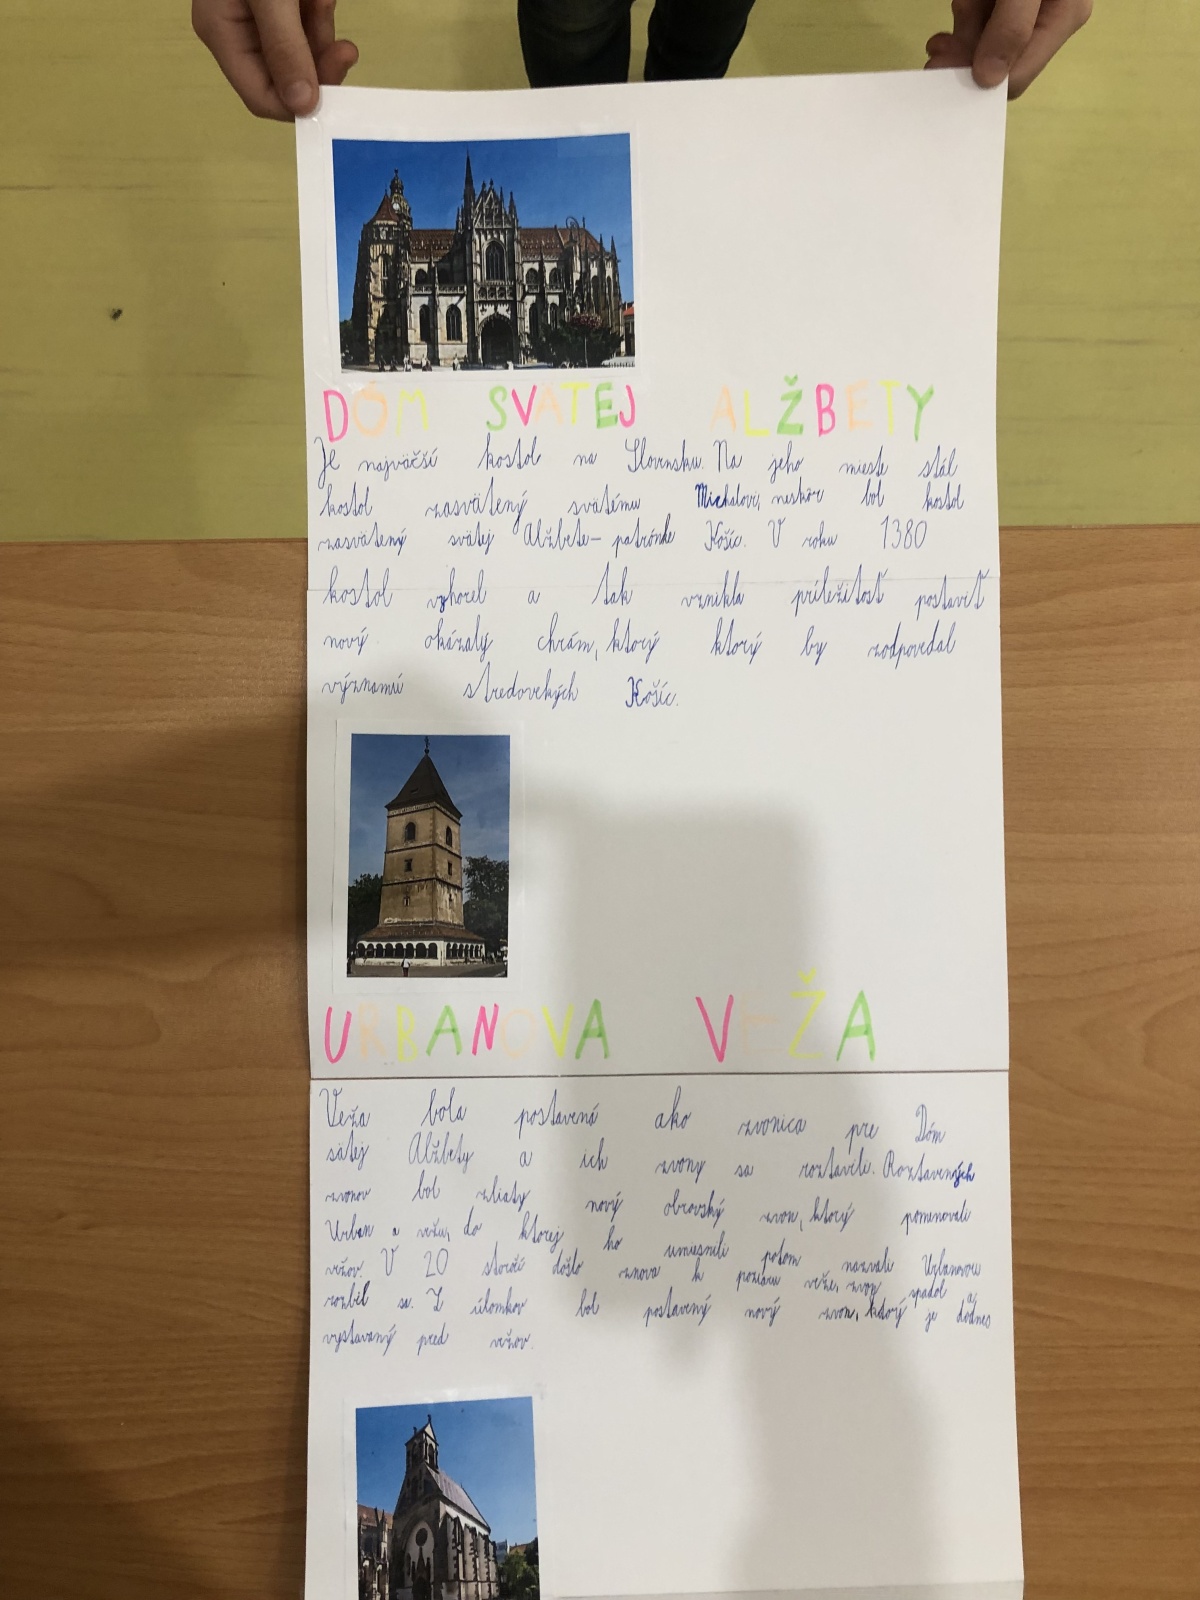 DÓM SVÄTEJ ALŽBETY
Je najväčší kostol na Slovensku. Na jeho mieste stál
kostol zasvätený svätému Michalovi, neskôr bol kostol
zasvätený svätej Alžbete - patrónke Košíc. V roku 1380
kostol vyhorel a tak vznikla príležitosť postaviť
nový okázalý chrám, ktorý ktorý by zodpovedal
významú stredovekých Košíc.
URBANOVA VEŽA
Veža bola postavená ako zvonica pre Dóm
sätej Alžbety a ich zvony sa roztavili. Roztavených
zvonov bol zliaty nový obrovský zvon, ktorý pomenovali
Urban a vežu, do ktorej ho umiesnili potom nazvali Urbanovou
vežov. V 20 storčí došlo znova k požiaru veže, zvon spadol a
rozbil sa. Z úlomkov bol postavený nový zvon, ktorý je dodnes
vystavaný pred vežov.